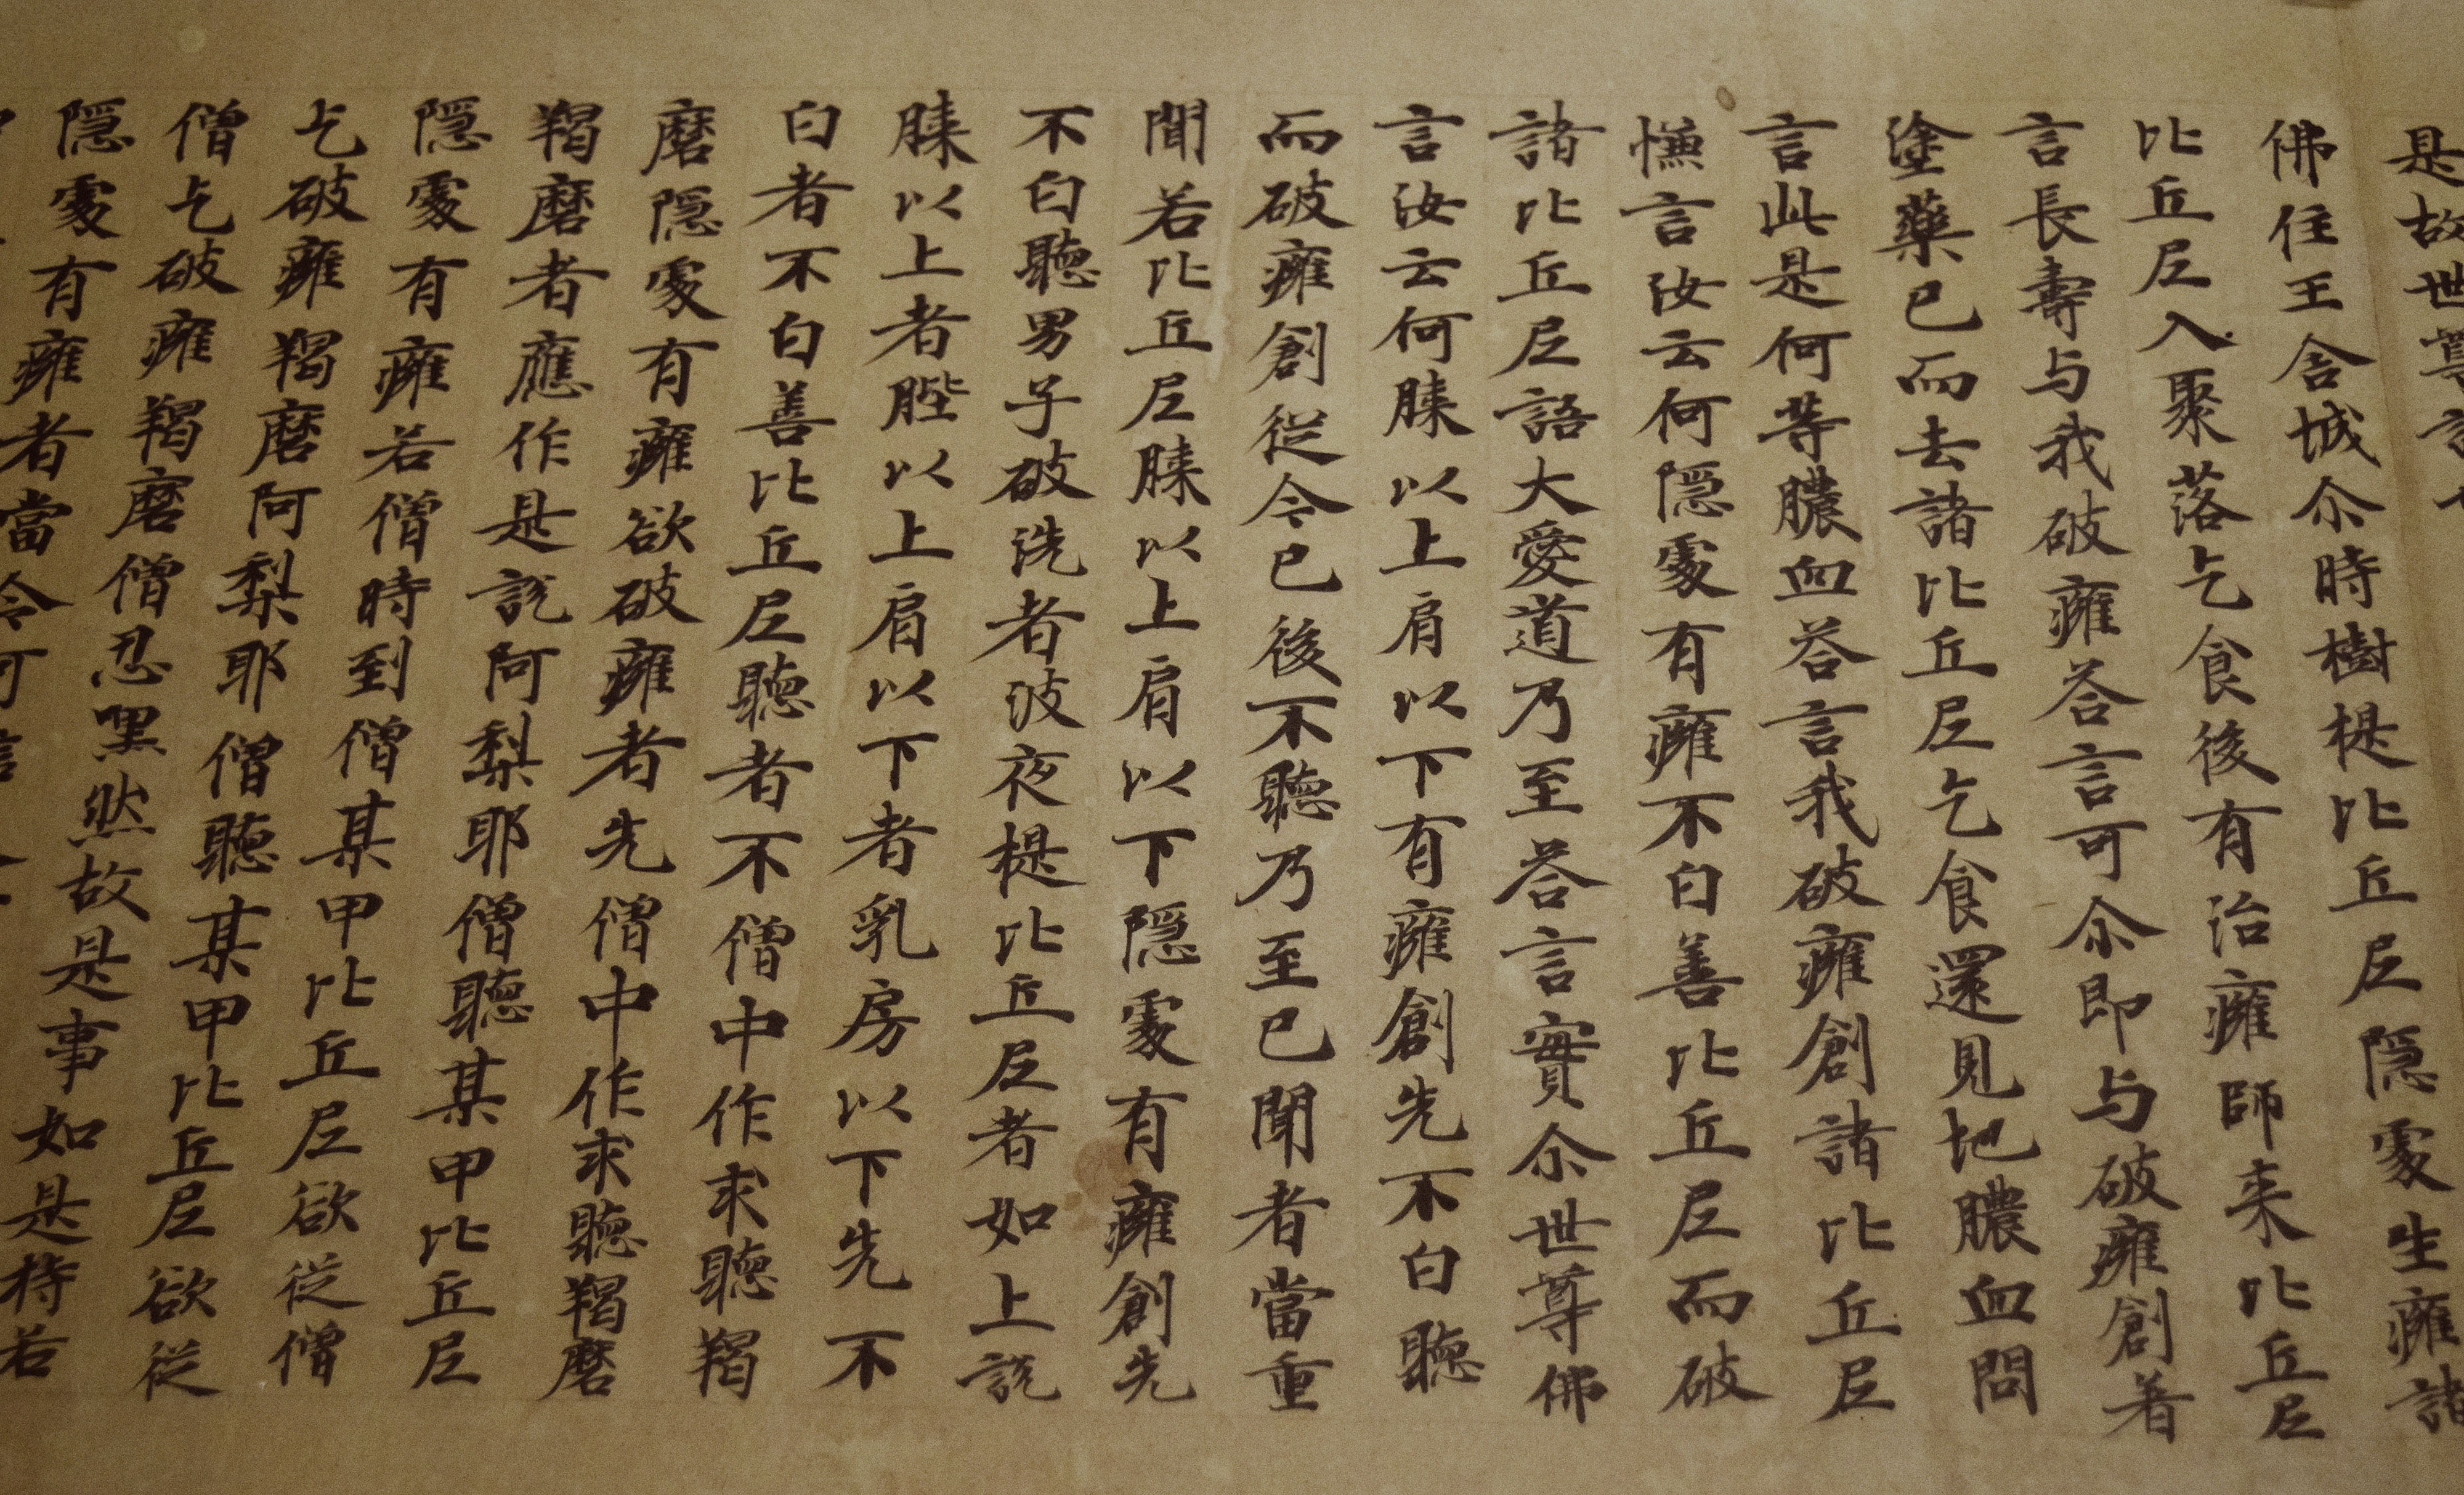 是故世尊
佛住王舍城尒時樹提比丘尼隱處生癰諸
比丘尼入聚落乞食後有治癰師来比丘尼
言長壽与我破癰荅言可尒即与破癰創着
塗藥已而去諸比丘尼乞食還見地膿血問
言此是何等膿血荅言我破癰創諸比丘尼
慊言汝云何隱處有癰不白善比丘尼而破
諸比丘尼語大愛道乃至荅言實尒世尊佛
言汝云何膝以上肩以下有癰創先不白聽
而破癰創従今已後不聽乃至已聞者當重
聞若比丘尼膝以上肩以下隱處有癰創先
不白聽男子破洗者波夜提比丘尼者如上説
膝以上者䏶以上肩以下者乳房以下先不
白者不白善比丘尼聽者不僧中作求聽羯
磨隱處有癰欲破癰者先僧中作求聽羯磨
羯磨者應作是説阿梨耶僧聽某甲比丘尼
隱處有癰若僧時到僧某甲比丘尼欲従僧
乞破癰羯磨阿梨耶僧聽某甲比丘尼欲従
僧乞破癰羯磨僧忍嘿然故是事如是持若
隱處有癰者當令可信